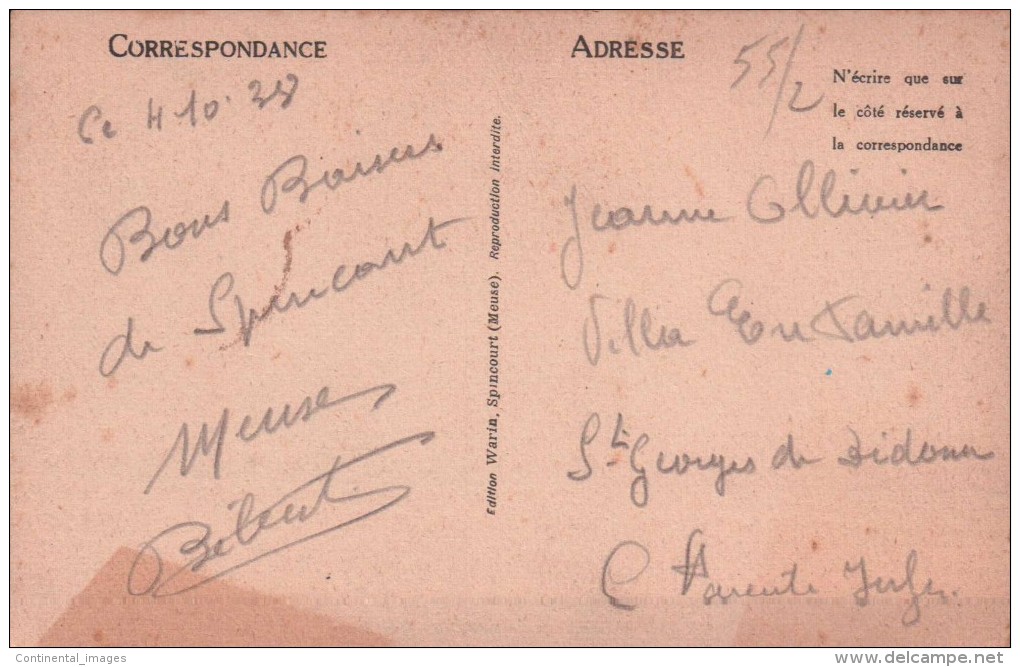 CORRESPONDANCE
Ce 4 10. 38
Bons Baisers
de Spincourt
Meuse
Edition Warin, Spincourt (Meuse). Reproduction Interdite.
ADRESSE
55/2
N'écrire que sur
le côté réservé à
la correspondance
Jeanne Ollivier
Villa En Famille
St Georges de Didonne
Charente Infer.
Continental_images
www.delcampe.net